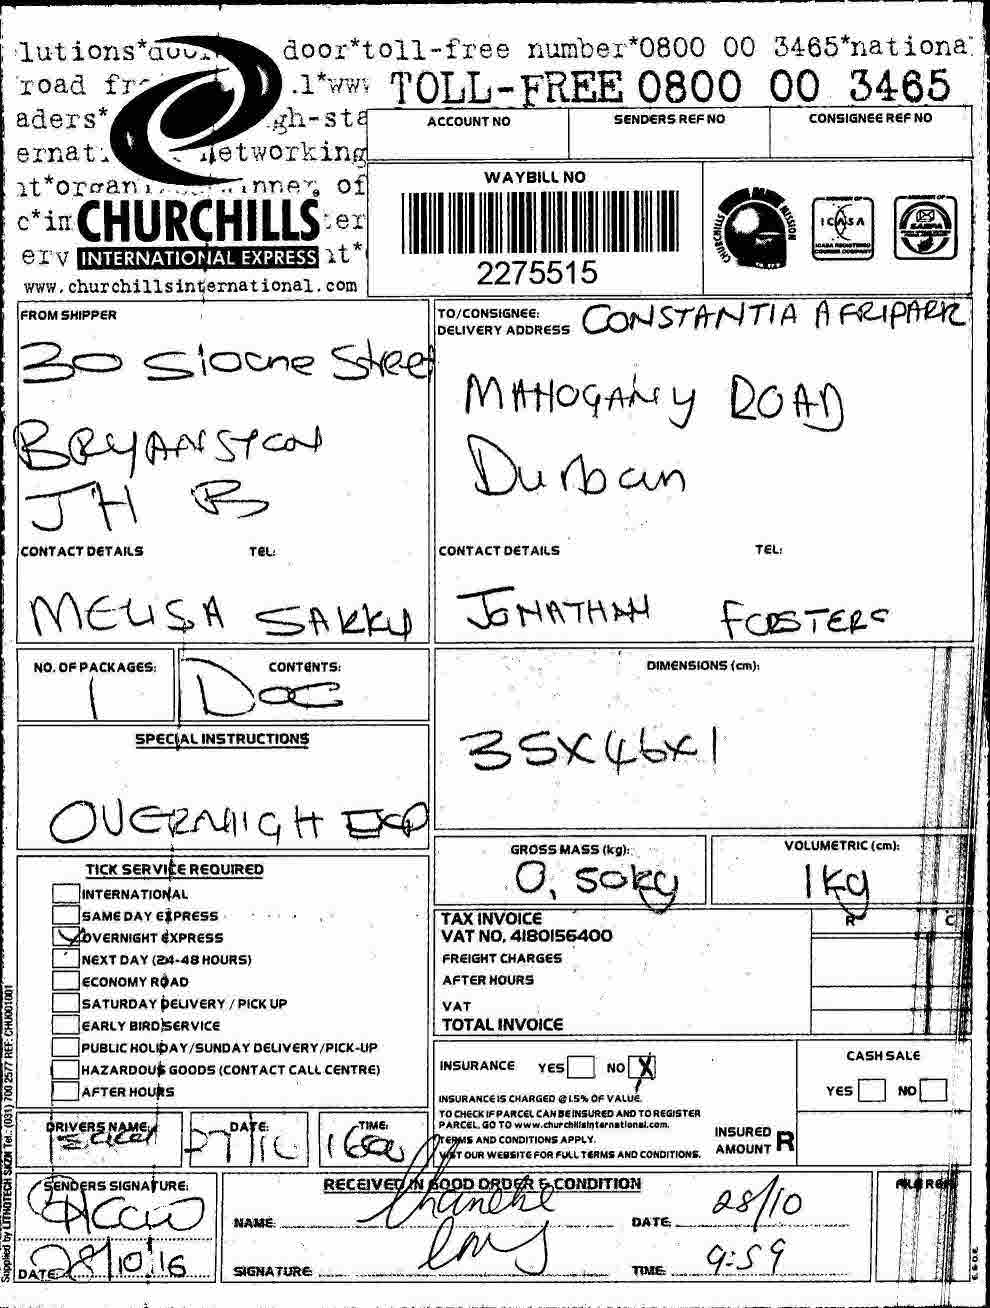 door*toll-free number*0800 00 3465*nationa
TOLL-FREE 0800 00 3465
ACCOUNT NO
SENDERS REF NO
CONSIGNEE REF NO
CHURCHILLS
INTERNATIONAL EXPRESS
www.churchillsinternational.com
WAYBILL NO
2275515
CHURCHILLS MISSION
ICASA
FROM SHIPPER
30 Sloane Street
BRYANSTON
JHB
CONTACT DETAILS TEL:
MELISA SAKKU
TO/CONSIGNEE:
DELIVERY ADDRESS
CONSTANTIA AFRIPARK
MAHOGANY ROAD
Durban
CONTACT DETAILS TEL:
JONATHAN FORSTERS
NO. OF PACKAGES:
1
CONTENTS:
Doc
DIMENSIONS (cm):
35X46X1
SPECIAL INSTRUCTIONS
OVERNIGH EXP
GROSS MASS (kg):
0,50kg
VOLUMETRIC (cm):
1kg
TICK SERVICE REQUIRED
INTERNATIONAL
SAME DAY EXPRESS
OVERNIGHT EXPRESS
NEXT DAY (24-48 HOURS)
ECONOMY ROAD
SATURDAY DELIVERY / PICK UP
EARLY BIRD SERVICE
PUBLIC HOLIDAY/SUNDAY DELIVERY/PICK-UP
HAZARDOUS GOODS (CONTACT CALL CENTRE)
AFTER HOURS
TAX INVOICE
VAT NO. 4180156400
R C
FREIGHT CHARGES
AFTER HOURS
VAT
TOTAL INVOICE
INSURANCE YES NO X
INSURANCE IS CHARGED @ 1.5% OF VALUE.
TO CHECK IF PARCEL CAN BE INSURED AND TO REGISTER
PARCEL, GO TO www.churchillsinternational.com.
TERMS AND CONDITIONS APPLY.
VISIT OUR WEBSITE FOR FULL TERMS AND CONDITIONS.
INSURED
AMOUNT R
CASH SALE
YES NO
DRIVERS NAME:
DATE:
27/10
TIME:
1600
SENDERS SIGNATURE:
DATE:
28/10/16
RECEIVED IN GOOD ORDER & CONDITION
NAME:
DATE
28/10
SIGNATURE
TIME:
9:59
FILE REF
E.&O.E.
Supplied by LITHOTECH SKZN Tel.: (031) 700 2577 REF: CHU001001